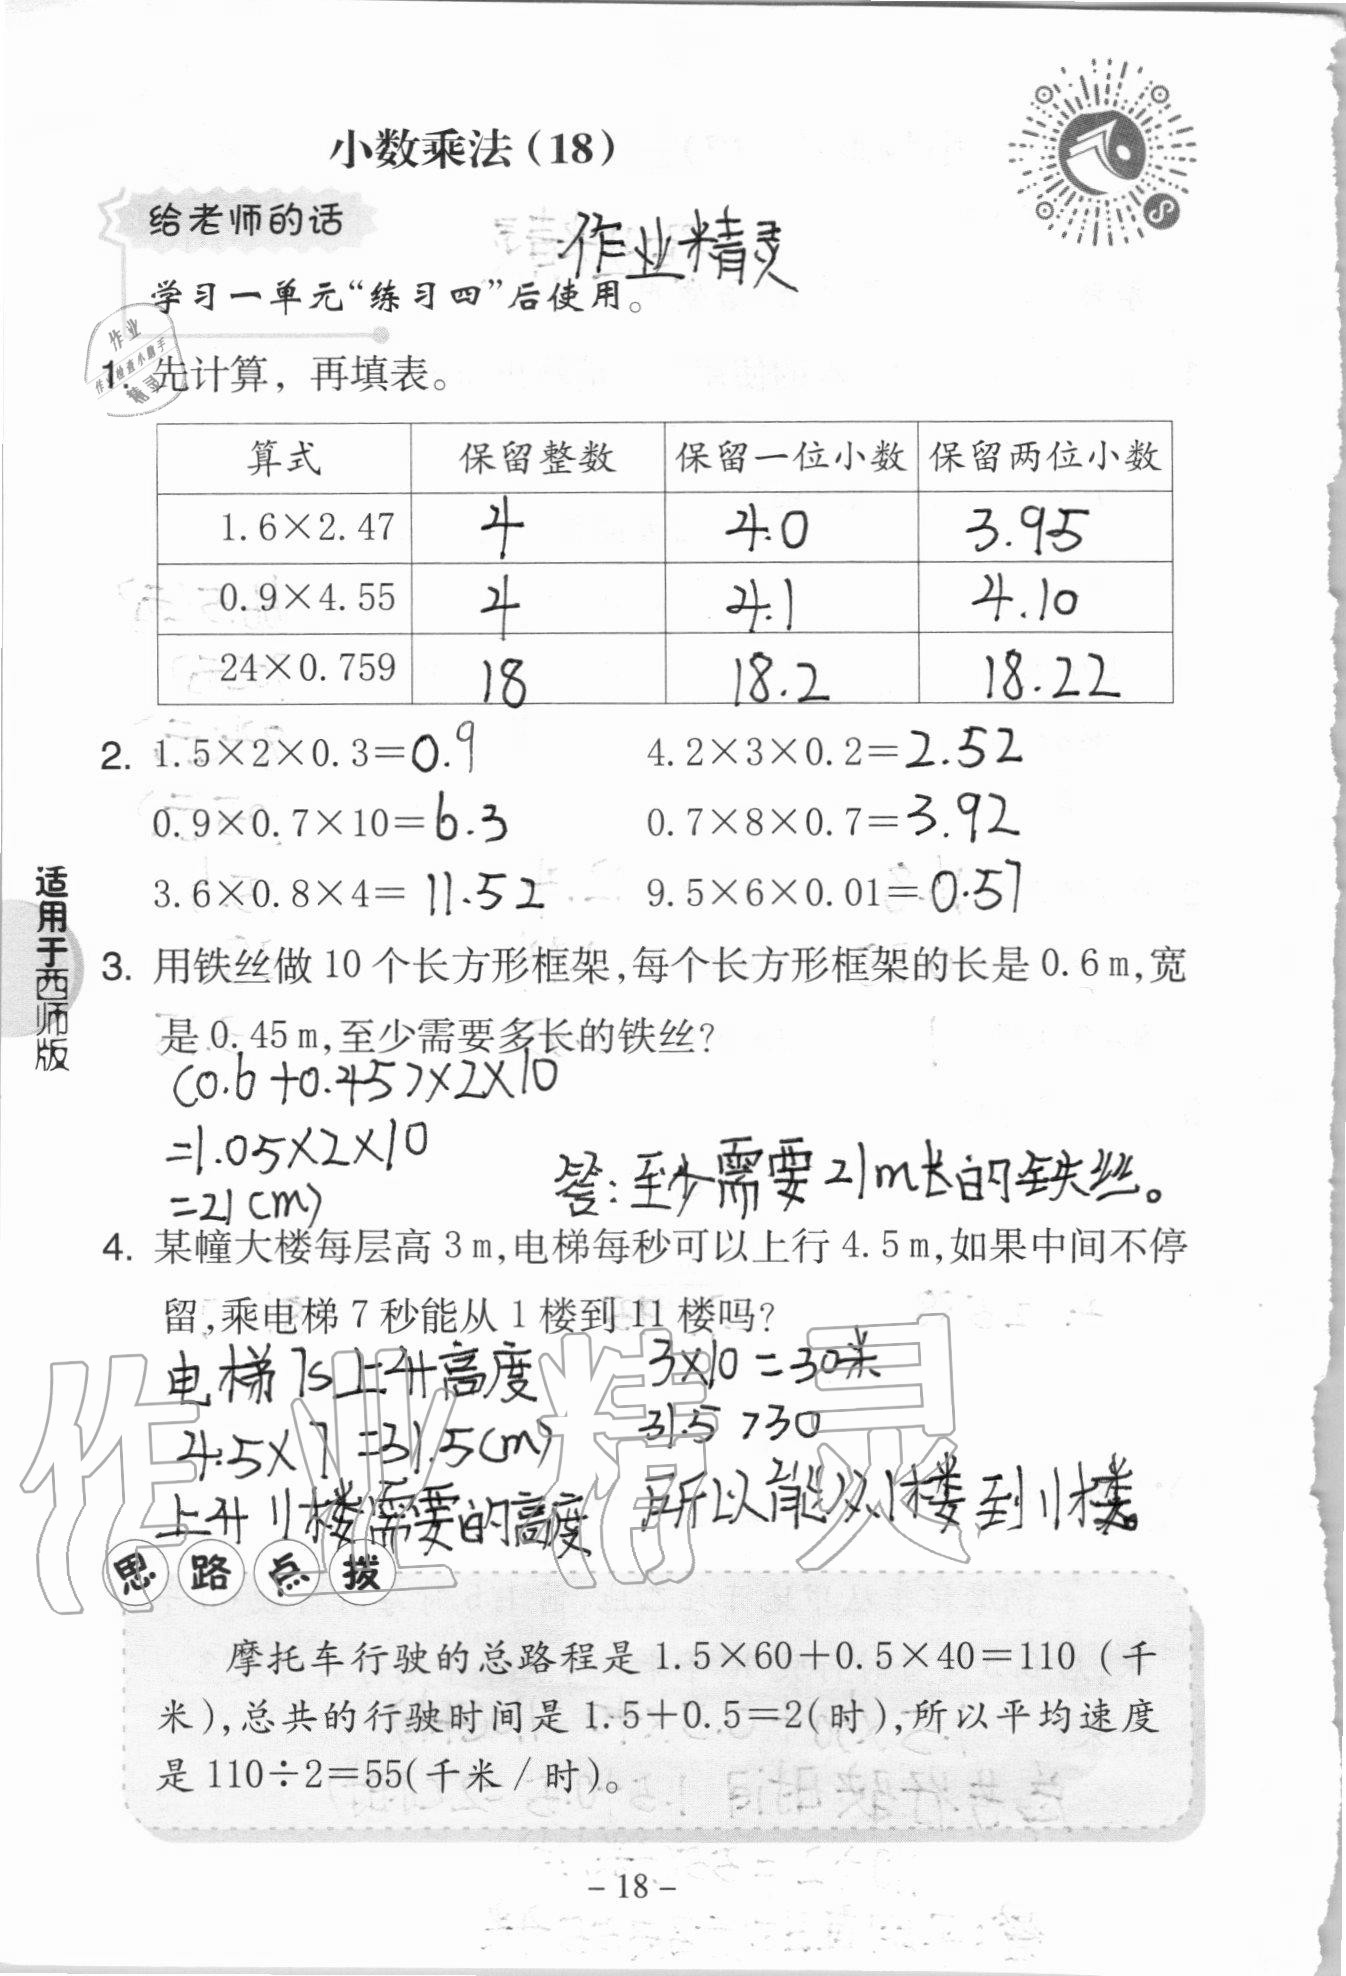 小数乘法(18)
给老师的话
作业精灵
学习一单元“练习四”后使用。
作业
作业检查小助手
精灵
1. 先计算，再填表。
算式 保留整数 保留一位小数 保留两位小数
1.6×2.47 4 4.0 3.95
0.9×4.55 4 4.1 4.10
24×0.759 18 18.2 18.22
2. 1.5×2×0.3=0.9 4.2×3×0.2=2.52
0.9×0.7×10=6.3 0.7×8×0.7=3.92
3.6×0.8×4=11.52 9.5×6×0.01=0.57
适用于西师版
3. 用铁丝做10个长方形框架,每个长方形框架的长是0.6m,宽
是0.45m,至少需要多长的铁丝?
(0.6+0.45)×2×10
=1.05×2×10
=21(m)
答:至少需要21m长的铁丝。
4. 某幢大楼每层高3m,电梯每秒可以上行4.5m,如果中间不停
留,乘电梯7秒能从1楼到11楼吗?
电梯7s上升高度
4.5×7=31.5(m)
上升11楼需要的高度
3×10=30米
31.5>30
所以能从1楼到11楼。
作业精灵
思路点拨
摩托车行驶的总路程是1.5×60+0.5×40=110(千
米),总共的行驶时间是1.5+0.5=2(时),所以平均速度
是110÷2=55(千米/时)。
-18-